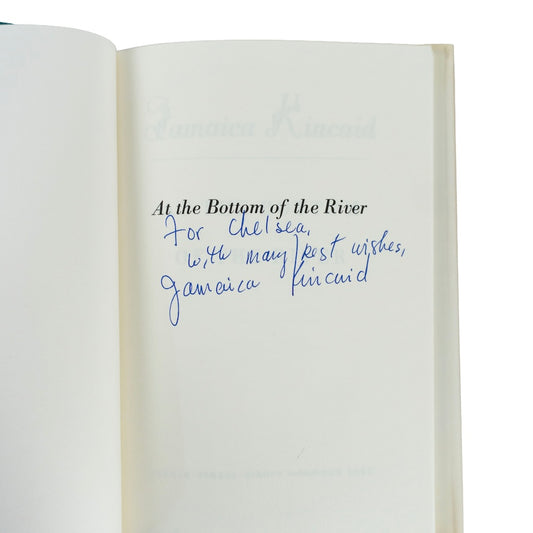 Jamaica Kincaid
At the Bottom of the River
For Chelsea,
with many best wishes,
Jamaica Kincaid